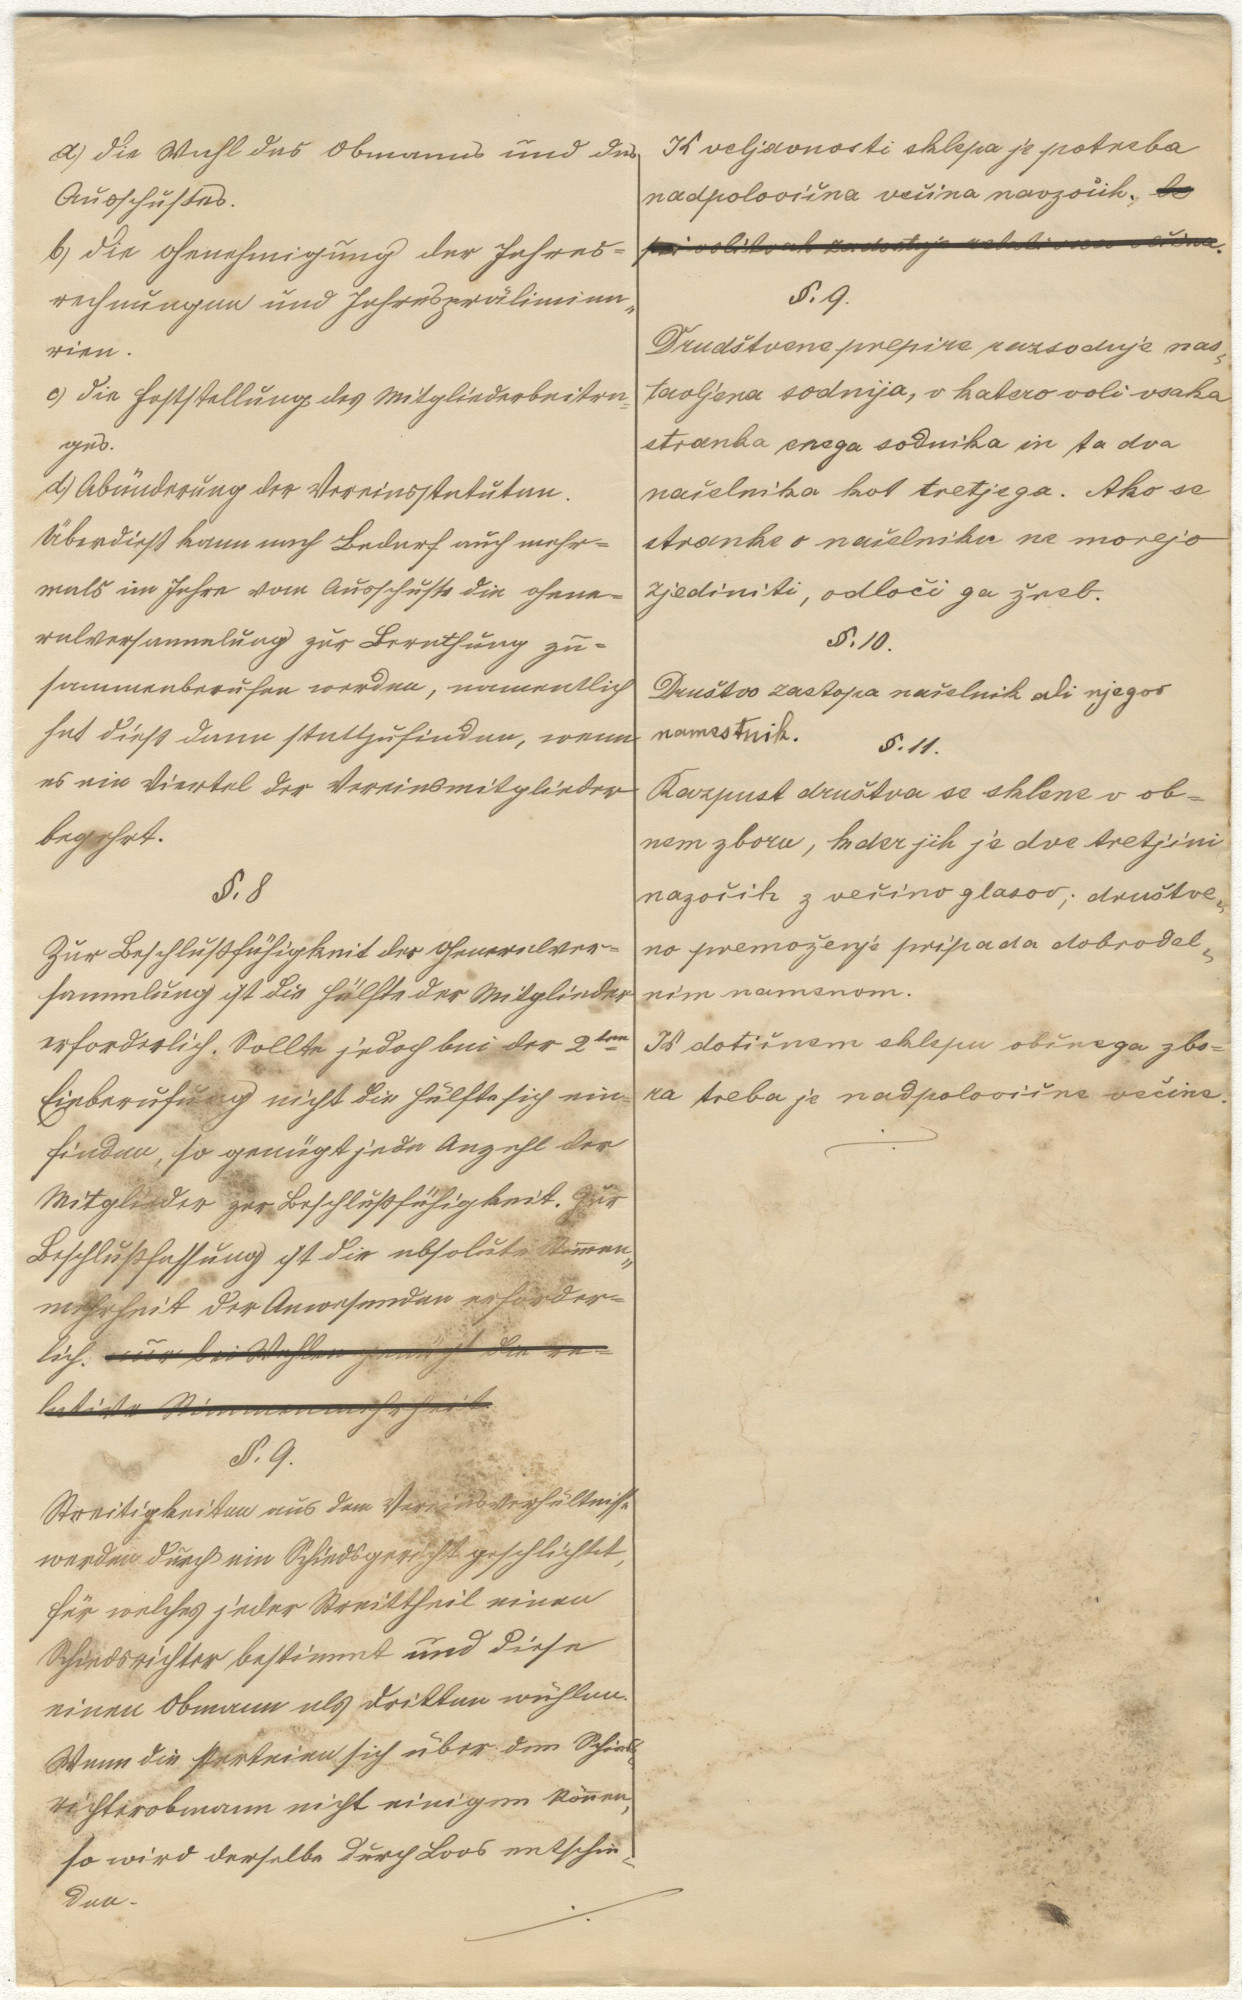 a) die Wahl des Obmanns und des
Ausschußes.
b) die Genehmigung der Jahres=
rechnungen und Jahrespräliminа„
rien.
c) die Feststellung des Mitgliederbeitra=
ges.
d) Abänderung der Vereinsstatuten.
Überdieß kann nach Bedarf auch mehr=
mals im Jahre vom Ausschuße die Gene=
ralversammlung zur Berathung zu=
sammenberufen werden, namentlich
hat dieß dann stattzufinden, wenn
es ein Viertel der Vereinsmitglieder
begehrt.
§. 8
Zur Beschlußfähigkeit der Generalver=
sammlung ist die Hälfte der Mitglieder
erforderlich. Sollte jedoch bei der 2ten
Einberufung nicht die Hälfte sich ein=
finden, so genügt jede Anzahl der
Mitglieder zur Beschlußfähigkeit. Zur
Beschlußfassung ist die absolute Stimmen„
mehrheit der Anwesenden erforder=
lich. nur bei Wahlen genügt die re=
lative Stimmenmehrheit
§. 9.
Streitigkeiten aus dem Vereinsverhältniße
werden durch ein Schiedsgericht geschlichtet,
für welches jeder Streittheil einen
Schiedsrichter bestimmt und diese
einen Obmann als Dritten wählen.
Wenn die Parteien sich über den Schieds„
richterobmann nicht einigen können,
so wird derselbe durch Loos entschie„
den.
K veljavnosti sklepa je potreba
nadpolovična večina navzočih, le
pri volitvah zadostuje relativna večina.
§. 9.
Družtvene prepire razsoduje nas„
tavljena sodnija, v katero voli vsaka
stranka enega sodnika in ta dva
načelnika kot tretjega. Ako se
stranke o načelniku ne morejo
zjediniti, odloči ga žreb.
§. 10.
Društvo zastopa načelnik ali njegov
namestnik.
§. 11.
Razpust društva se sklene v ob=
nem zboru, kder jih je dve tretjini
nazočih z večino glasov; društve„
no premoženje pripada dobrodel„
nim namenom.
K dotičnem sklepu občnega zbo=
ra treba je nadpolovične večine.